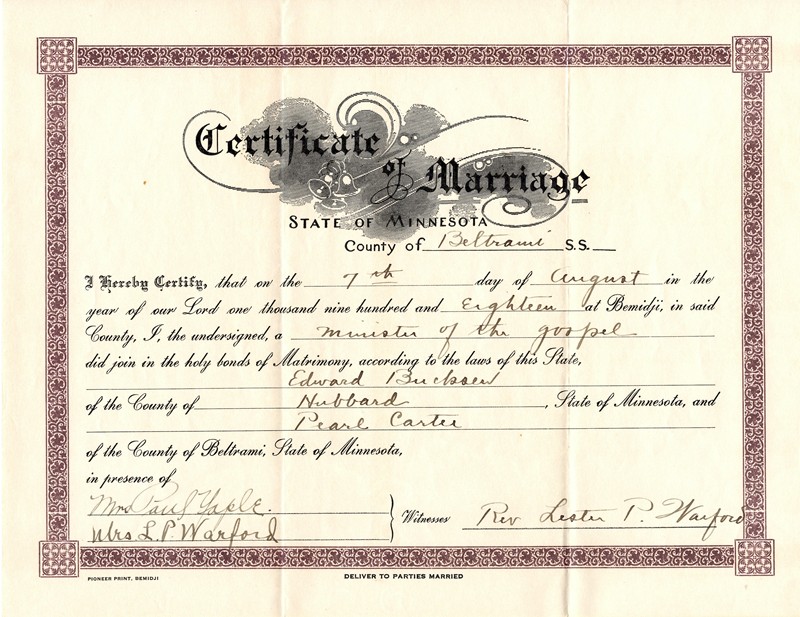 Certificate
of Marriage
STATE OF MINNESOTA
County of Beltrami S.S.
I Hereby Certify, that on the 7th day of August in the
year of our Lord one thousand nine hundred and Eighteen at Bemidji, in said
County, I, the undersigned, a minister of the gospel
did join in the holy bonds of Matrimony, according to the laws of this State,
Edward Bucksen
of the County of Hubbard, State of Minnesota, and
Pearl Carter
of the County of Beltrami, State of Minnesota,
in presence of
Mrs Paul Yaple.
Mrs L. P. Warford
Witnesses Rev Lester P. Warford
PIONEER PRINT, BEMIDJI
DELIVER TO PARTIES MARRIED